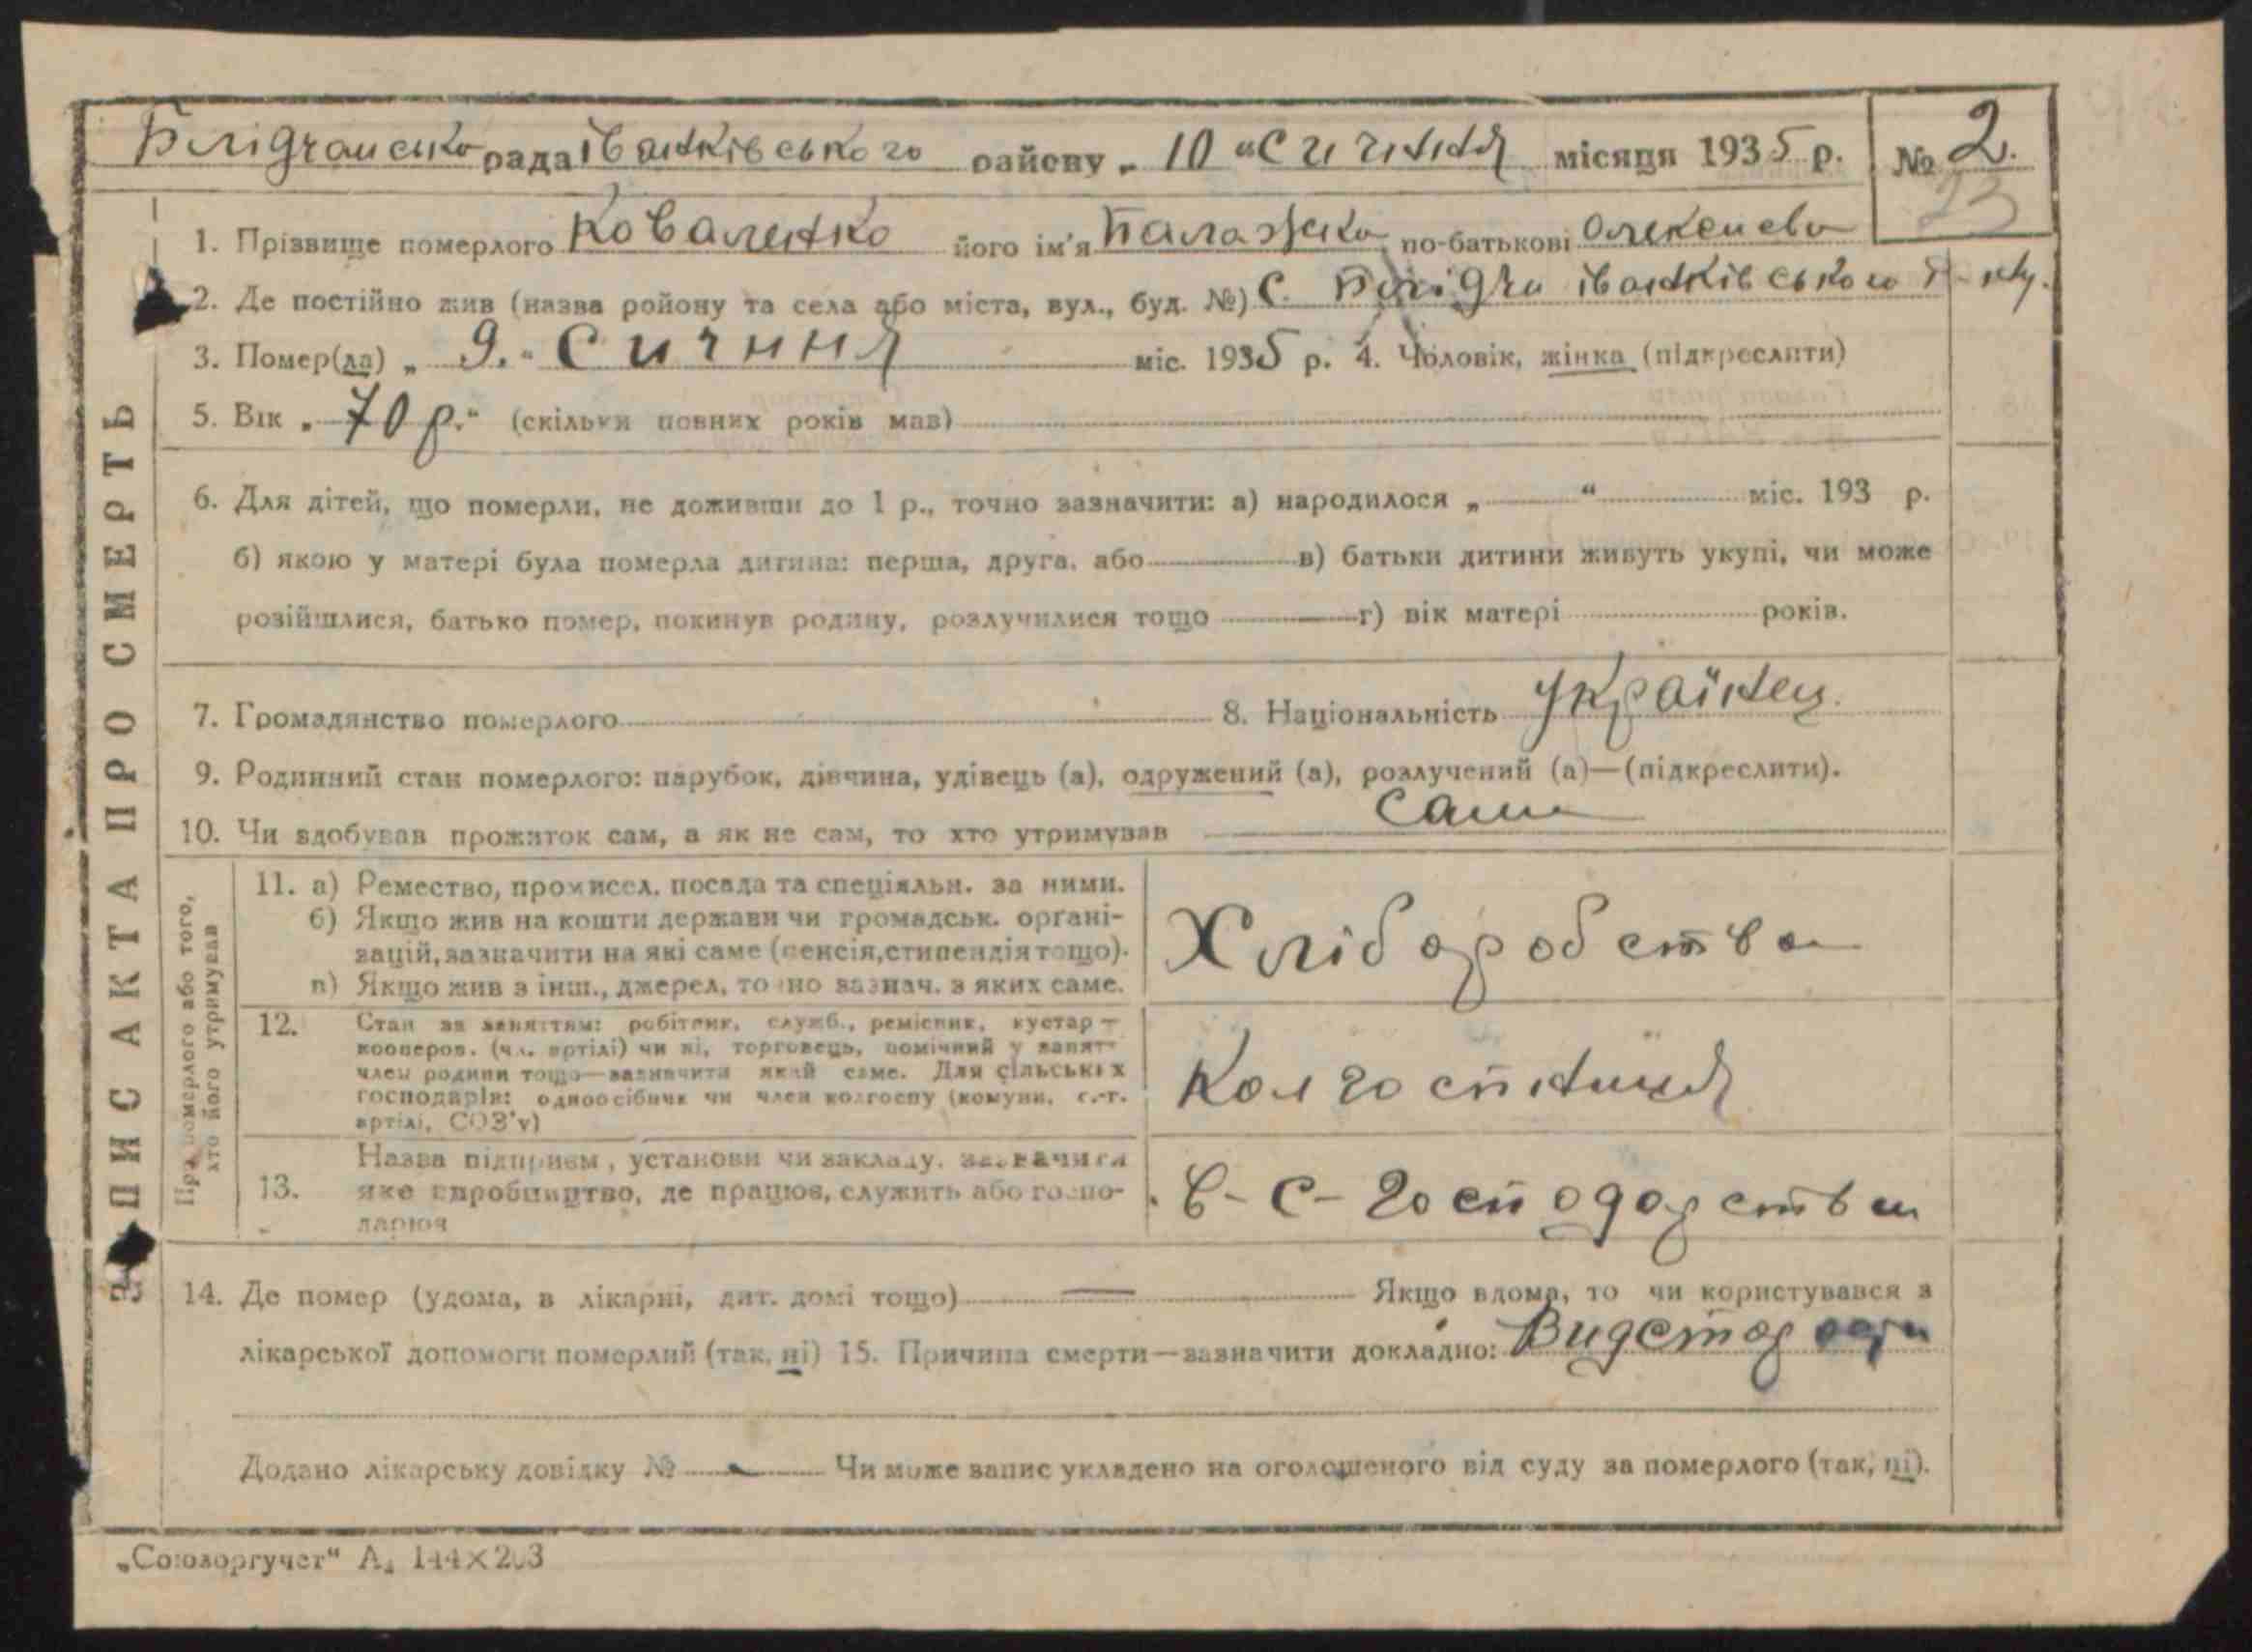 Блідчансько рада іванківського району „ 10 “ Сичння місяця 1935 р. № 2.
23
1. Прізвище померлого Коваленко його ім'я Палажка по-батькові Олексієва
2. Де постійно жив (назва ройону та села або міста, вул., буд. №) С. Блідча іванківського р-ну.
3. Помер(ла) „ 9. “ Сичння міс. 1935 р. 4. Чоловік, жінка (підкреслити)
5. Вік „ 70 р. “ (скільки повних років мав)
6. Для дітей, що померли, не доживши до 1 р., точно зазначити: а) народилося „ “ міс. 193 р.
б) якою у матері була померла дитина: перша, друга, або в) батьки дитини живуть укупі, чи може
розійшлися, батько помер, покинув родину, розлучилися тощо г) вік матері років.
7. Громадянство померлого 8. Національність Українец.
9. Родинний стан померлого: парубок, дівчина, удівець (а), одружений (а), розлучений (а)—(підкреслити).
10. Чи здобував прожиток сам, а як не сам, то хто утримував Сама
ЗАПИС АКТА ПРО СМЕРТЬ
Про померлого або того,
хто його утримував
11. а) Ремество, промисел, посада та спеціяльн. за ними.
б) Якщо жив на кошти держави чи громадськ. органі-
зацій, зазначити на які саме (пенсія, стипендія тощо).
в) Якщо жив з інш., джерел, точно зазнач. з яких саме.
Хліборобства
12. Стан за заняттям: робітник, служб., ремісник, кустар —
кооперов. (чл. артілі) чи ні, торговець, помічний у занятт
член родини тощо—зазначити який саме. Для сільських
господарів: одноосібник чи член колгоспу (комуни, с.-г.
артілі, СОЗ'у)
Колгоспниця
13. Назва підприєм, установи чи закладу, зазначити
яке виробництво, де працює, служить або госпо-
дарює
в-с-господарстви
14. Де помер (удома, в лікарні, дит. домі тощо) — Якщо вдома, то чи користувався з
лікарської допомоги померлий (так, ні) 15. Причина смерти—зазначити докладно:
Додано лікарську довідку № — Чи може запис укладено на оголошеного від суду за померлого (так, ні).
„Союзоргучет“ А₄ 144×203